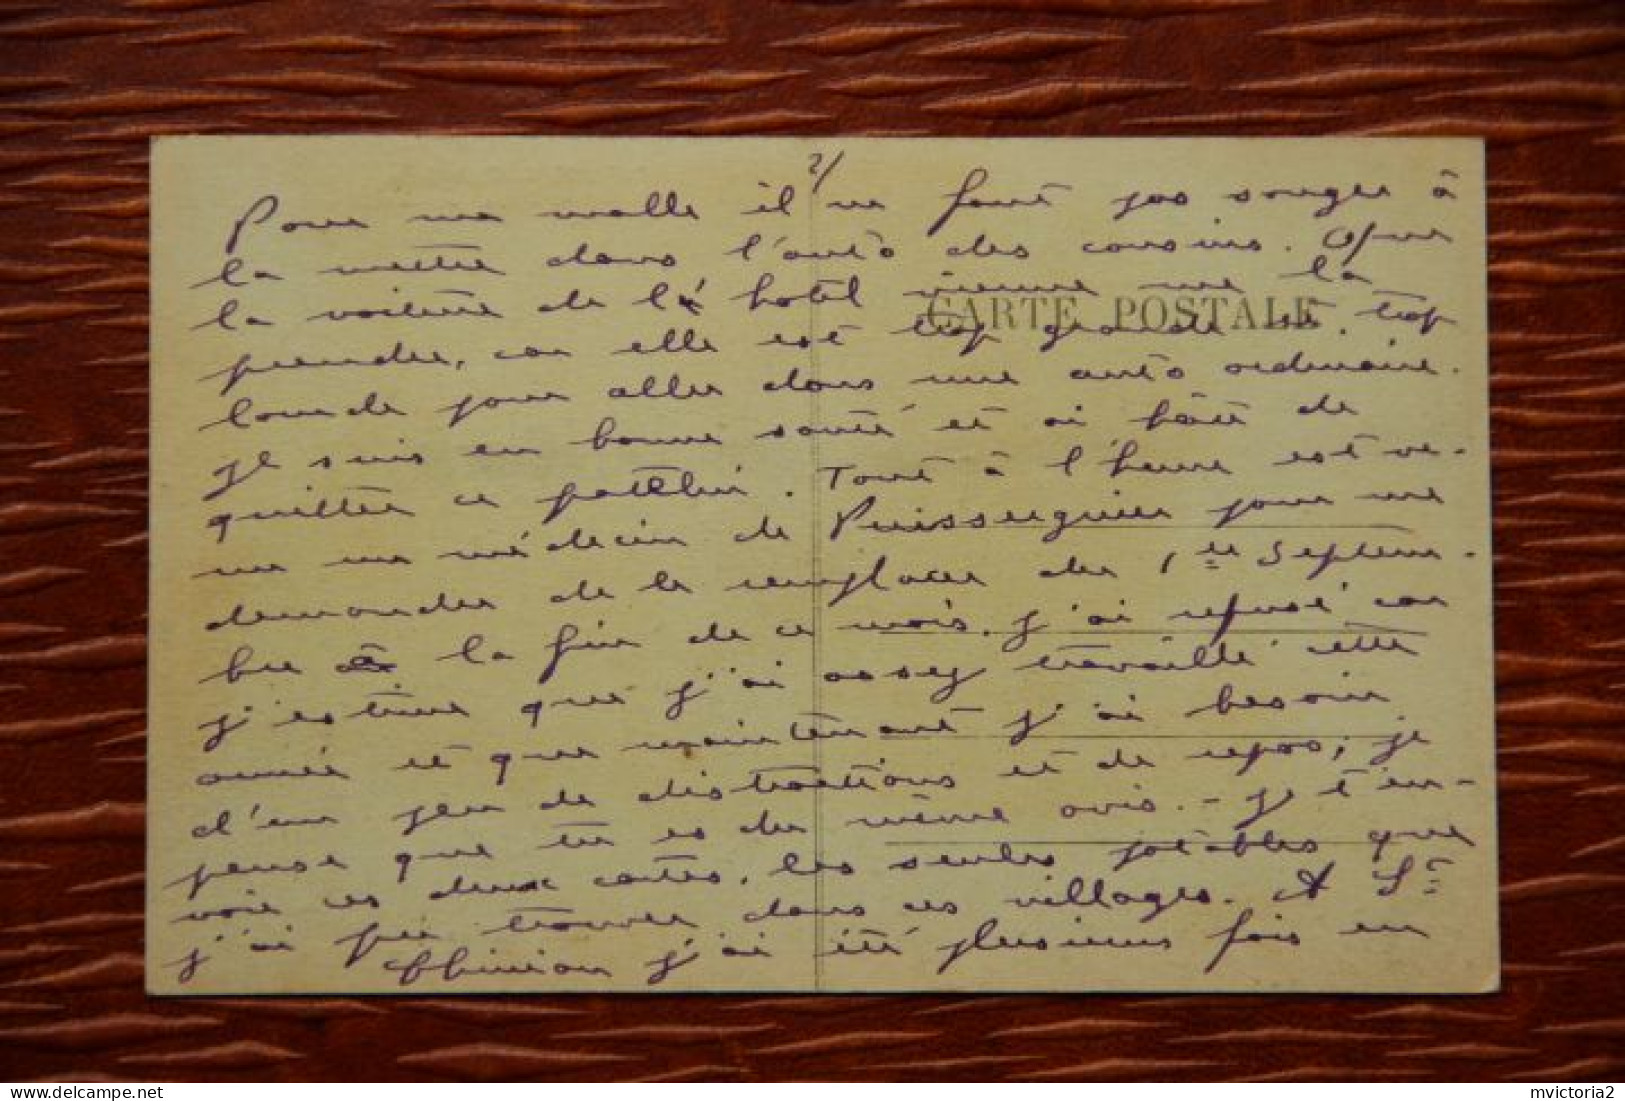 2/
Pour ma malle il ne faut pas songer à
la mettre dans l'auto des cousins. Que
la voiture de l'hotel vienne me la
CARTE POSTALE
prendre, car elle est trop grande et trop
lourde pour aller dans une auto ordinaire.
Je suis en bonne santé et ai hâte de
quitter ce patelin. Tout à l'heure est ve-
nu un médecin de Puisserguier pour me
demander de le remplacer du 1er Septem-
bre à la fin de ce mois. J'ai refusé car
j'estime que j'ai assez travaillé cette
année et que maintenant j'ai besoin
d'un peu de distractions et de repos; je
pense que tu es du même avis. - Je t'en-
voie ces deux cartes, les seules potables que
j'ai pu trouver dans ces villages. A St
Chinian j'ai été plusieurs fois en
mvictoria2